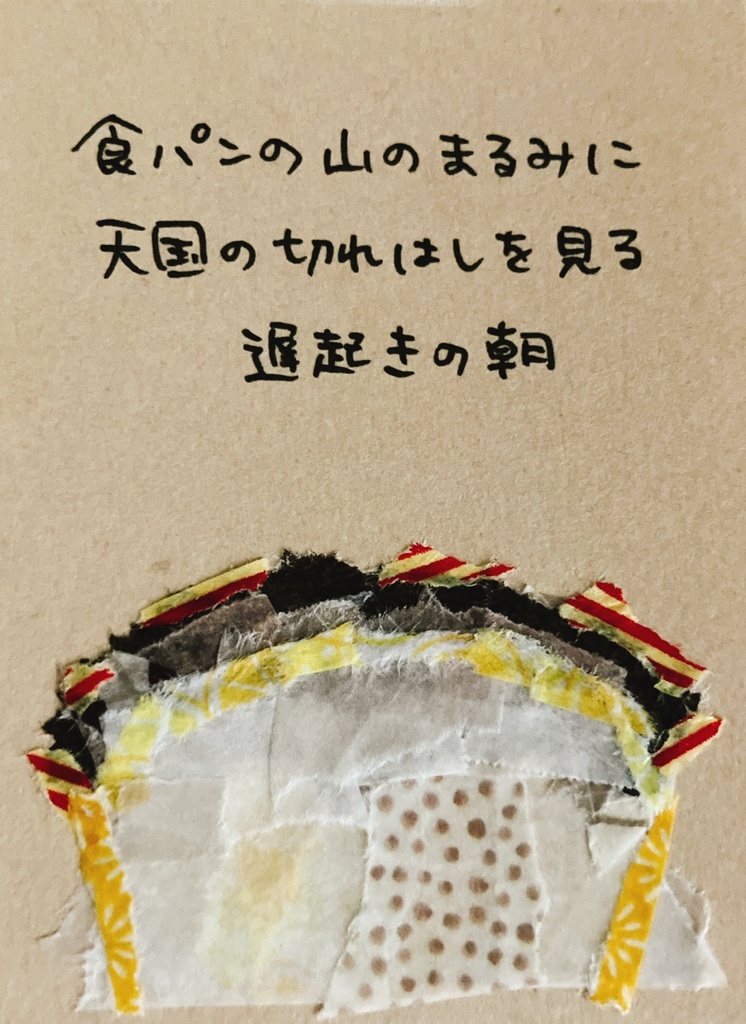 食パンの山のまるみに
天国の切れはしを見る
遅起きの朝